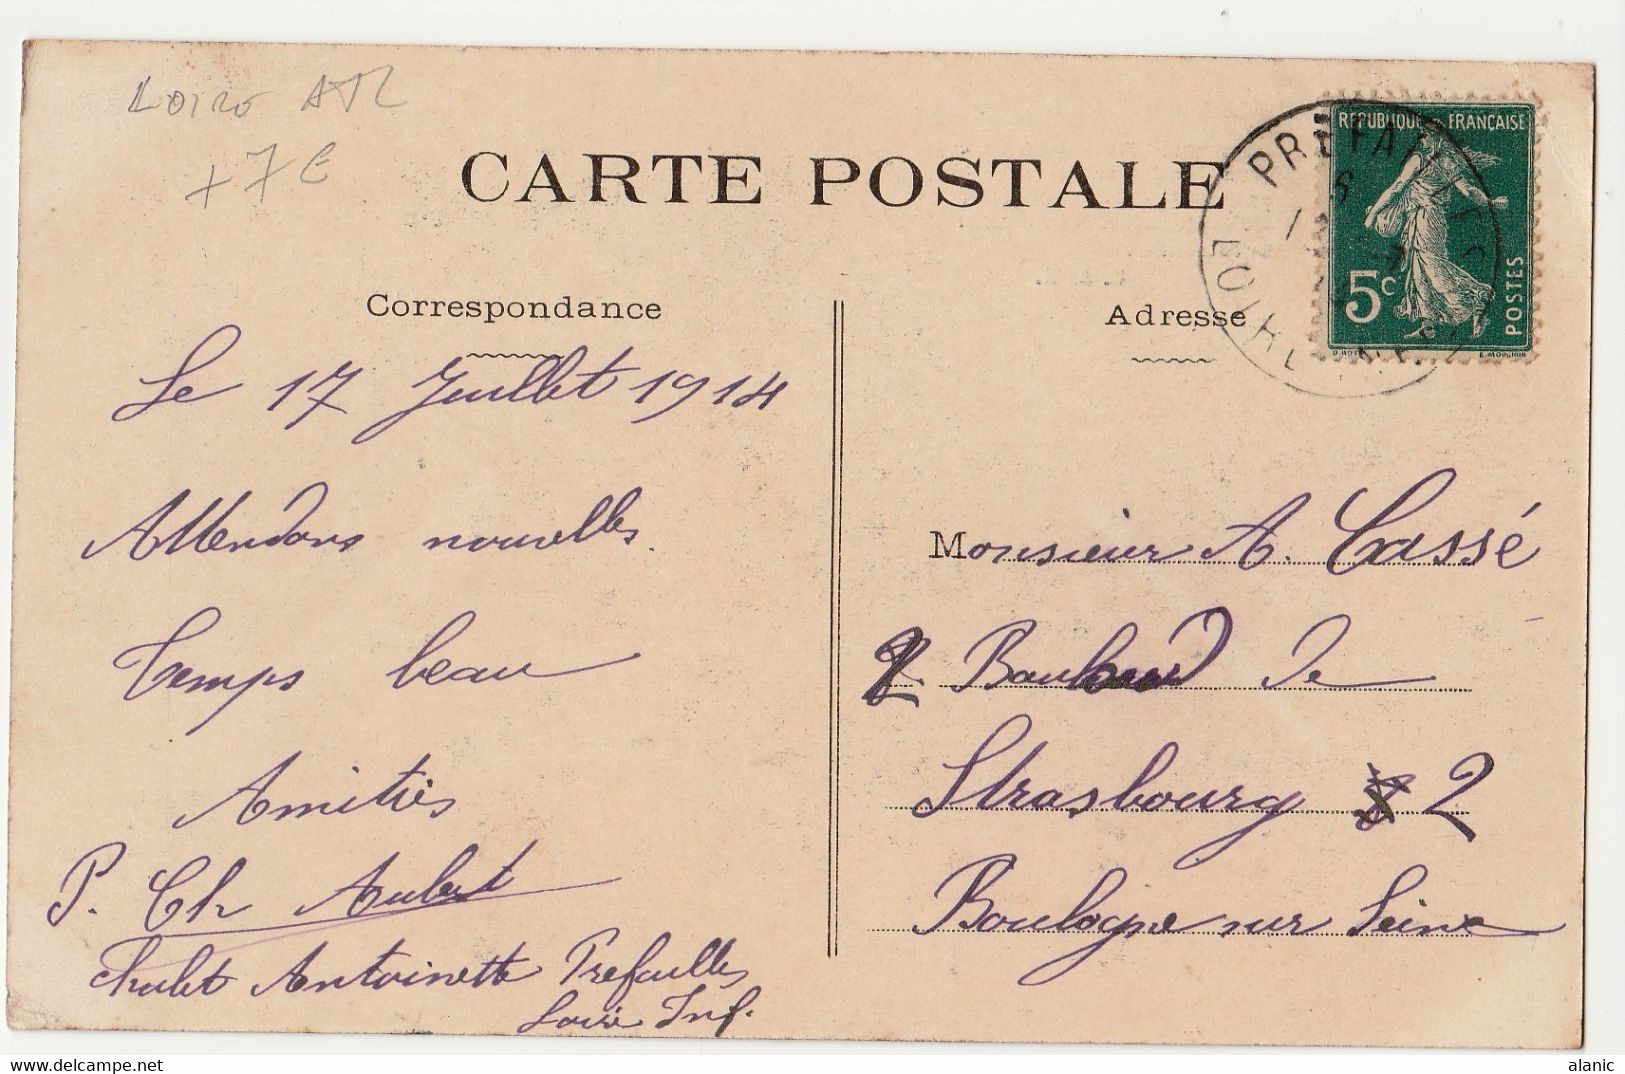 Loire ATL
+ 7 E
CARTE POSTALE
REPUBLIQUE FRANÇAISE
5c
POSTES
O. ROTY
E. MOUCHON
PREFAILLES
LOIRE INFRE
Correspondance
Le 17 Juillet 1914
Attendons nouvelles
Temps beau
Amitiés
P. Ch Aubert
Chalet Antoinette Prefailles
Loire Inf.
Adresse
Monsieur A. Cassé
2 Boulevard de
Strasbourg 2
Boulogne sur Seine
alanic